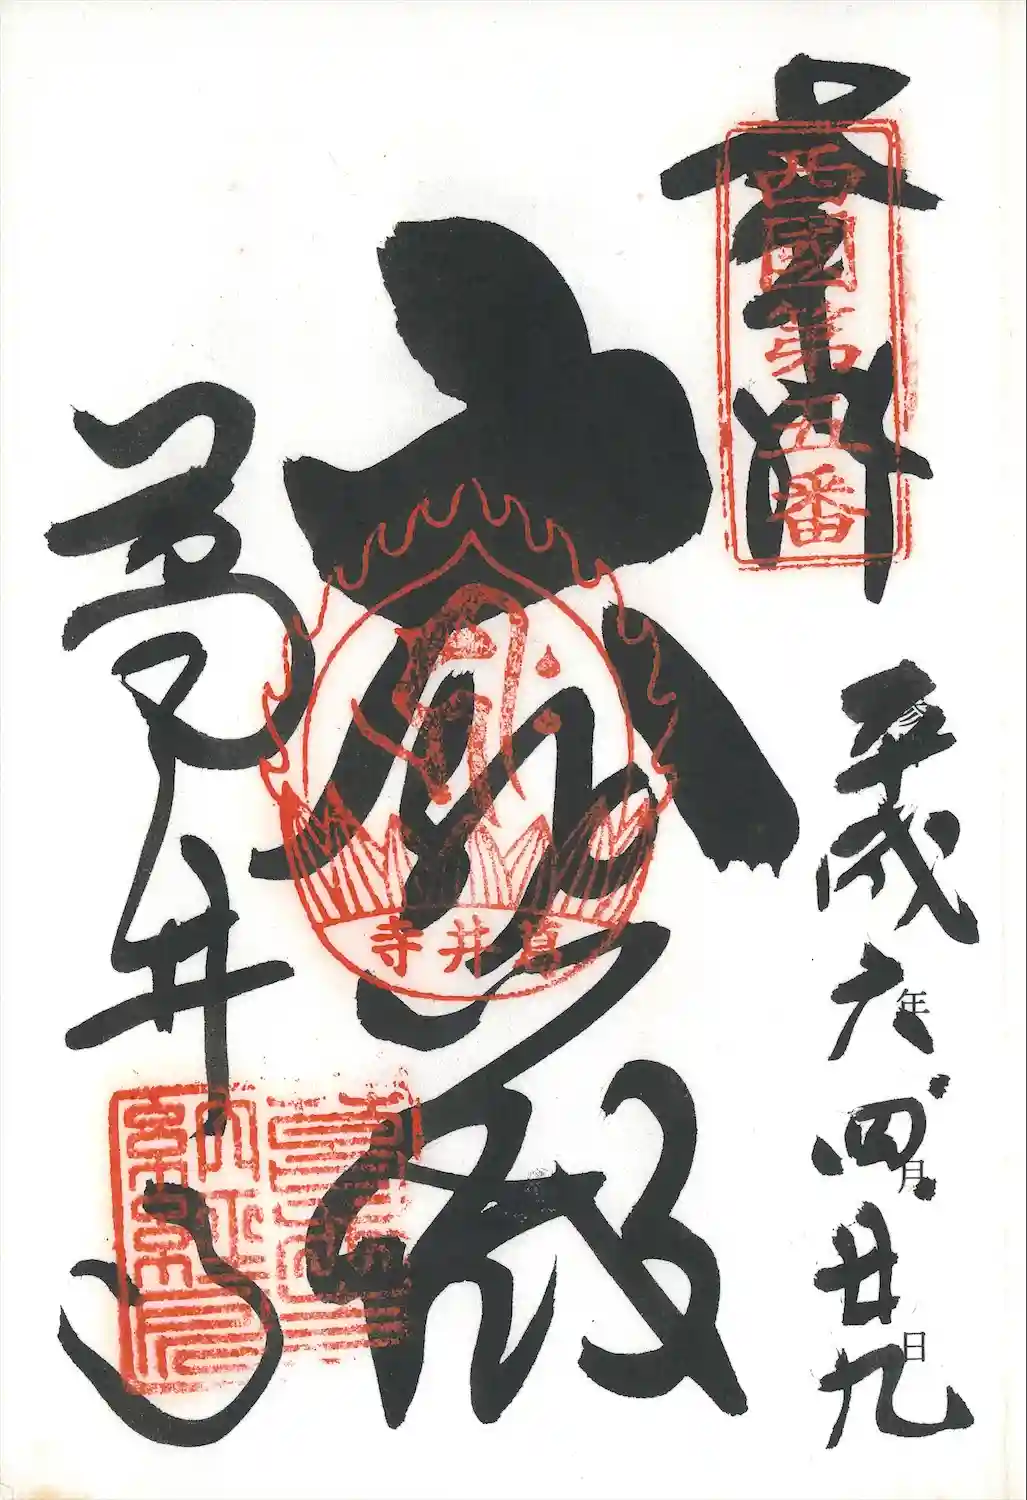 奉拝
西國第五番
平成六年四月廿九日
大悲殿
葛井寺
葛井寺